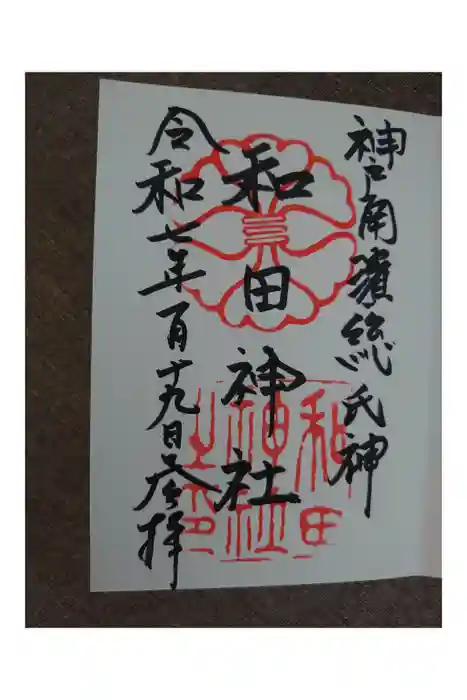 神戸南濱総氏神
和田神社
令和七年一月十九日参拝
和田
神社
之印